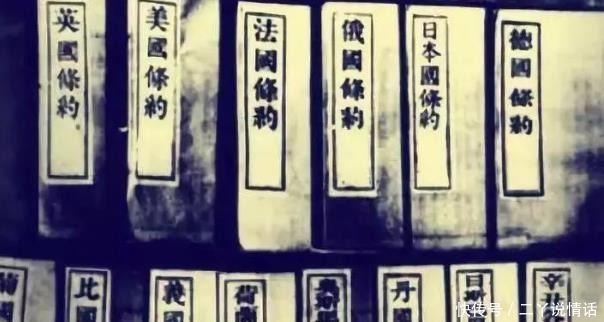 英國條約
美國條約
法國條約
俄國條約
日本國條約
德國條約
國
比國
義國
荷
丹國
日
辛
快传号 / 二丫说情话